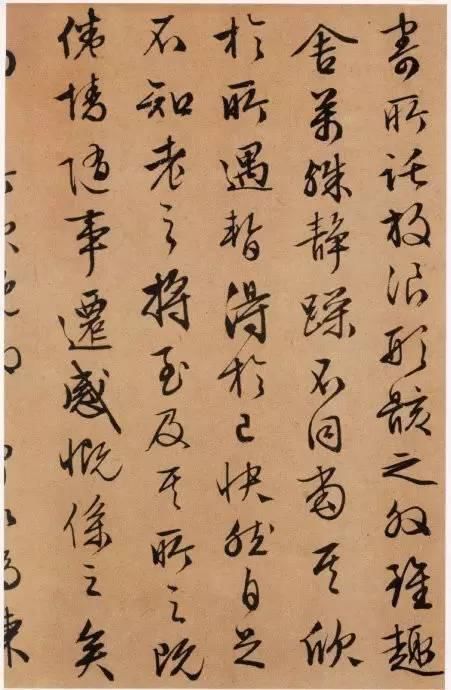 寄所託放浪形骸之外雖趣
舍萬殊静躁不同當其欣
於所遇暫得於己快然自足
不知老之將至及其所之既
倦情隨事遷感慨係之矣